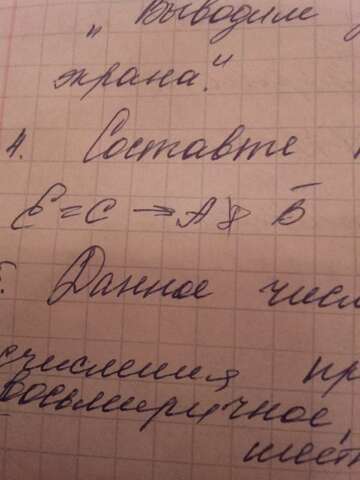 "Выводим
экрана."
4. Составте
E=C → A & Б̅
5. Данное числ
счисления пр
восьмеричное,
шест